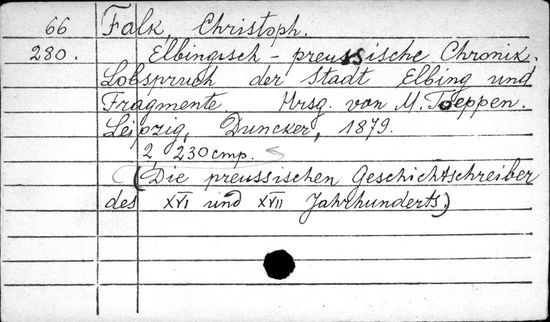 66 Falk, Christoph.
280. Elbingisch-preussische Chronik.
Lobspruch der Stadt Elbing und
Fragmente. Hrsg. von M. Toeppen.
Leipzig, Duncker, 1879.
2, 230 стр.
(Die preussischen Geschichtschreiber
des XVI und XVII Jahrhunderts.)